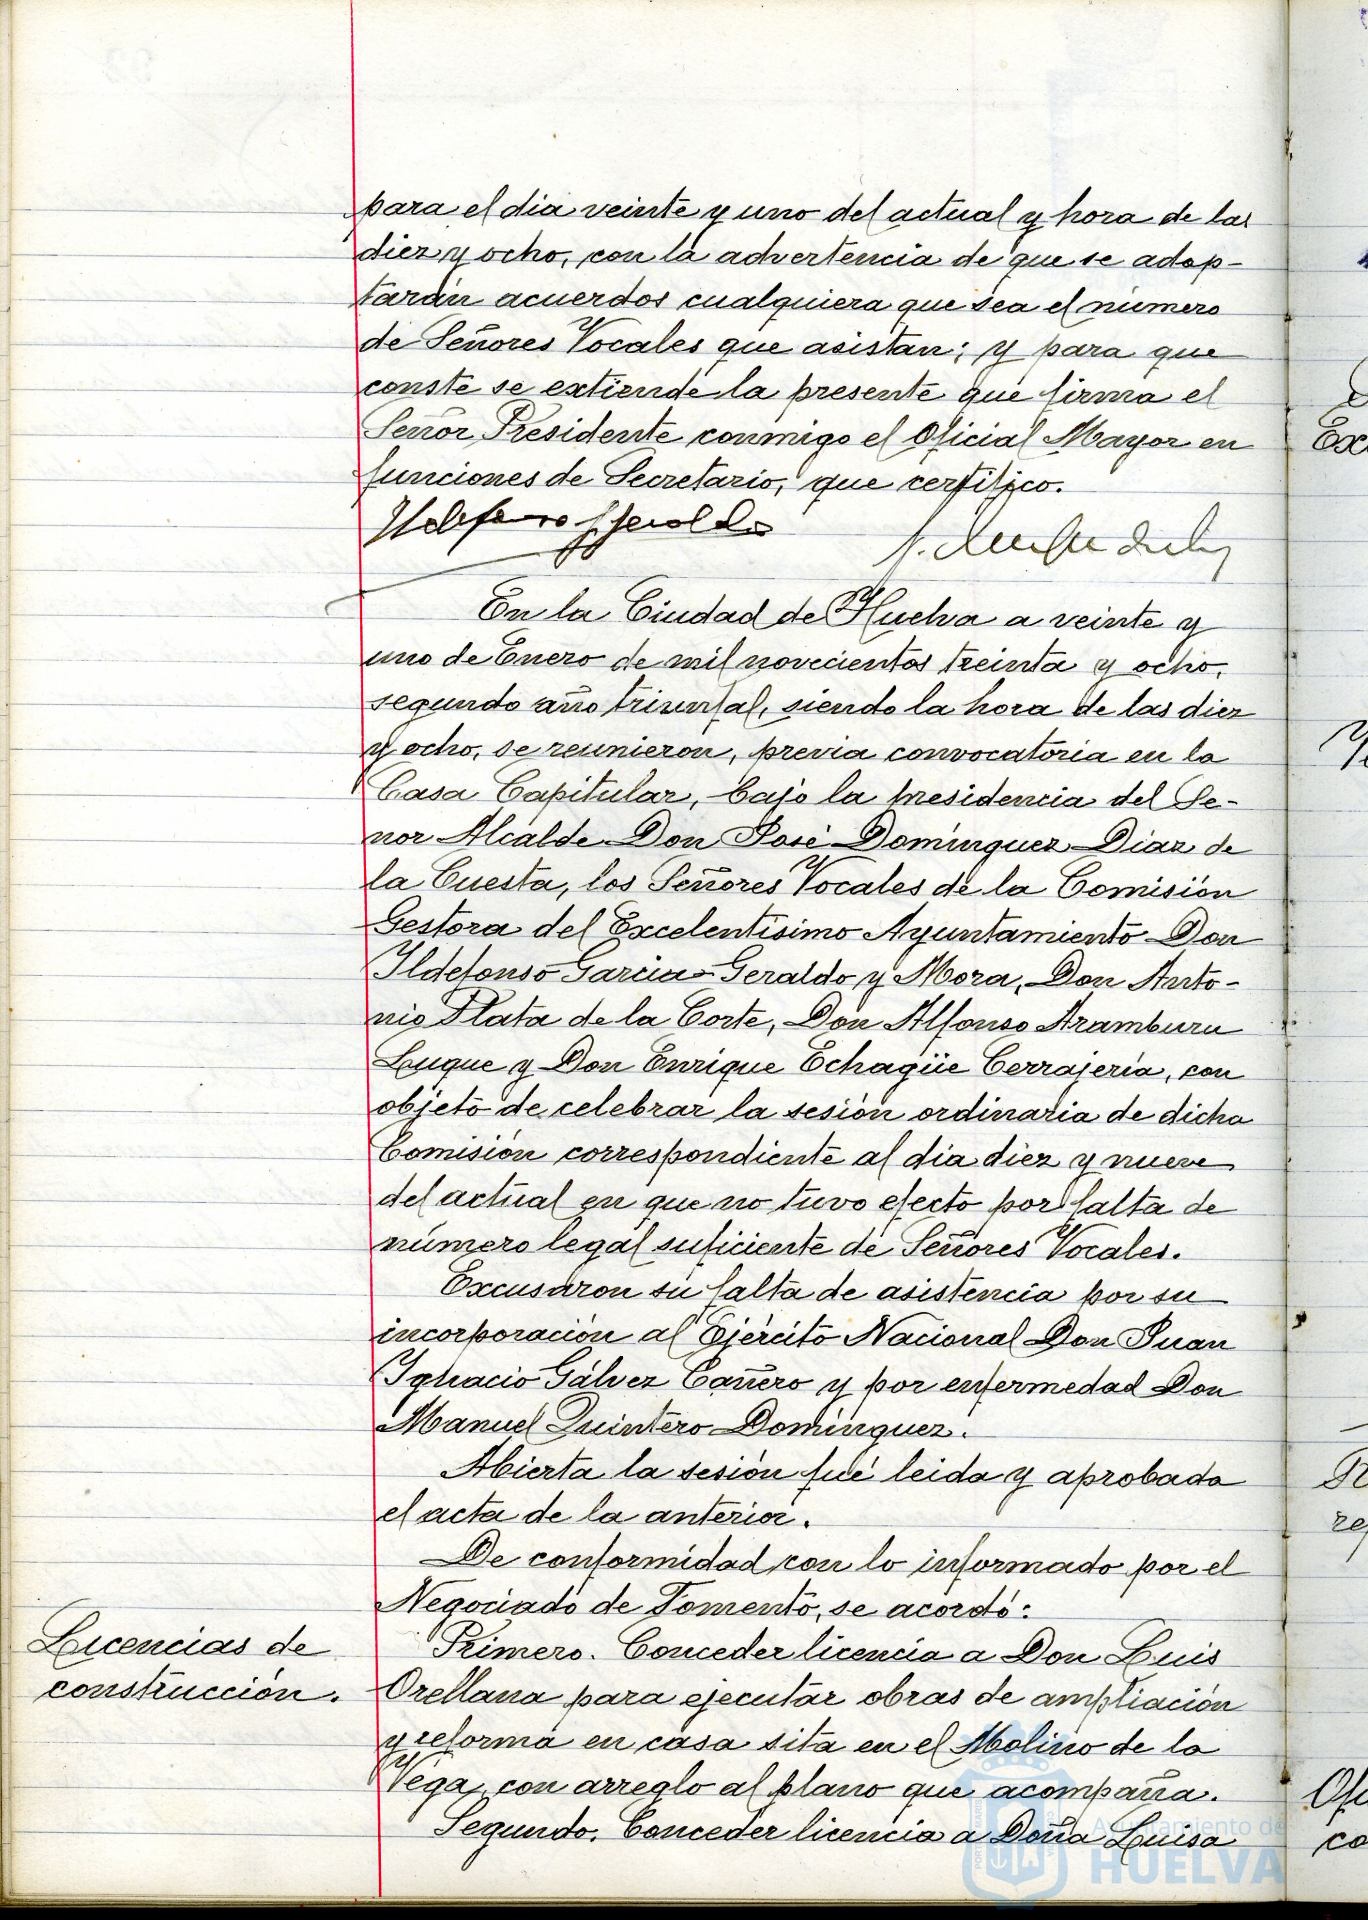 para el dia veinte y uno del actual y hora de las
diez y ocho, con la advertencia de que se adop-
tarán acuerdos cualquiera que sea el número
de Señores Vocales que asistan; y para que
conste se extiende la presente que firma el
Señor Presidente conmigo el Oficial Mayor en
funciones de Secretario, que certifico.
En la Ciudad de Huelva a veinte y
uno de Enero de mil novecientos treinta y ocho,
segundo año triunfal, siendo la hora de las diez
y ocho, se reunieron, previa convocatoria en la
Casa Capitular, bajo la presidencia del Se-
ñor Alcalde Don José Domínguez Diaz de
la Cuesta, los Señores Vocales de la Comisión
Gestora del Excelentísimo Ayuntamiento Don
Ildefonso Garcia-Geraldo y Mora, Don Anto-
nio Plata de la Corte, Don Alfonso Aramburu
Luque y Don Enrique Echagüe Cerrajería, con
objeto de celebrar la sesión ordinaria de dicha
Comisión correspondiente al dia diez y nueve
del actual en que no tuvo efecto por falta de
número legal suficiente de Señores Vocales.
Excusaron su falta de asistencia por su
incorporación al Ejército Nacional Don Juan
Ignacio Gálvez Cañero y por enfermedad Don
Manuel Quintero Domínguez.
Abierta la sesión fué leida y aprobada
el acta de la anterior.
De conformidad con lo informado por el
Negociado de Fomento, se acordó:
Licencias de
construcción.
Primero. Conceder licencia a Don Luis
Orellana para ejecutar obras de ampliación
y reforma en casa sita en el Molino de la
Vega, con arreglo al plano que acompaña.
Segundo. Conceder licencia a Doña Luisa
Ayuntamiento de
HUELVA